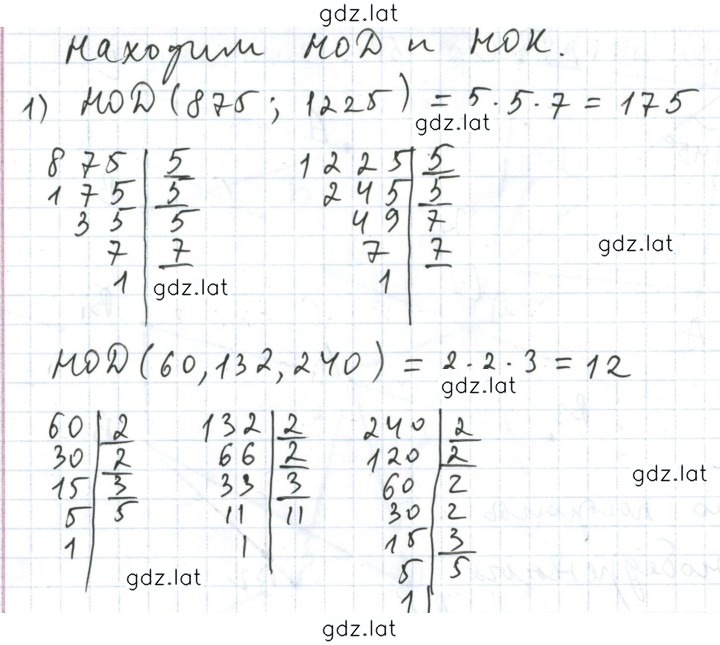 gdz.lat
Находим НОД и НОК.
1) НОД (875; 1225) = 5·5·7 = 175
gdz.lat
875 | 5 1225 | 5
175 | 5 245 | 5
35 | 5 49 | 7
7 | 7 7 | 7
gdz.lat
1 | 1 |
gdz.lat
НОД (60, 132, 240) = 2·2·3 = 12
gdz.lat
60 | 2 132 | 2 240 | 2
30 | 2 66 | 2 120 | 2
15 | 3 33 | 3 60 | 2
gdz.lat
5 | 5 11 | 11 30 | 2
1 | 1 | 15 | 3
gdz.lat
5 | 5
1 |
gdz.lat